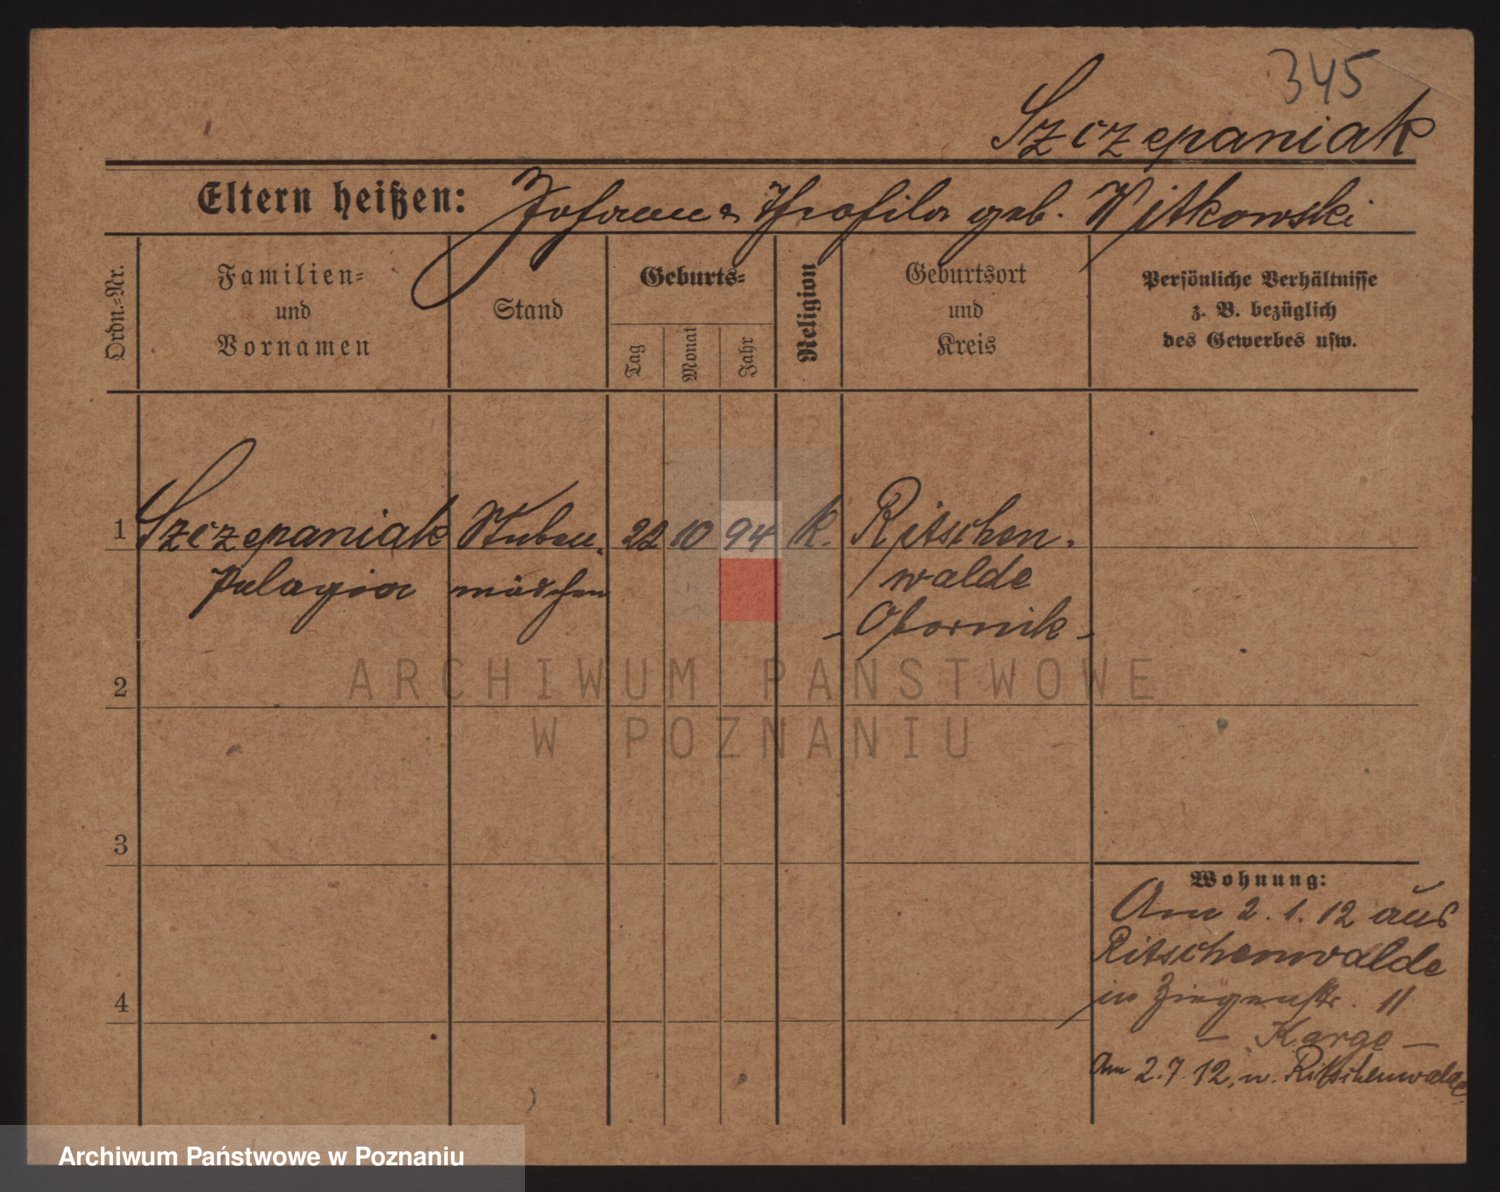 345
Szczepaniak
Eltern heißen: Johann & Theofila geb. Witkowski
Ordn.-Nr.
Familien-
und
Vornamen
Stand
Geburts-
Tag
Monat
Jahr
Religion
Geburtsort
und
Kreis
Persönliche Verhältnisse
z. B. bezüglich
des Gewerbes usw.
1 Szczepaniak Stuben- 22 10 94 K. Ritschen-
Pelagia mädchen walde
- Obornik -
ARCHIWUM PAŃSTWOWE
W POZNANIU
2
3
4
Wohnung:
Am 2.1.12 aus
Ritschenwalde
in Ziegenstr. 11
- Karge -
Am 2.7.12. n. Ritschenwalde
Archiwum Państwowe w Poznaniu